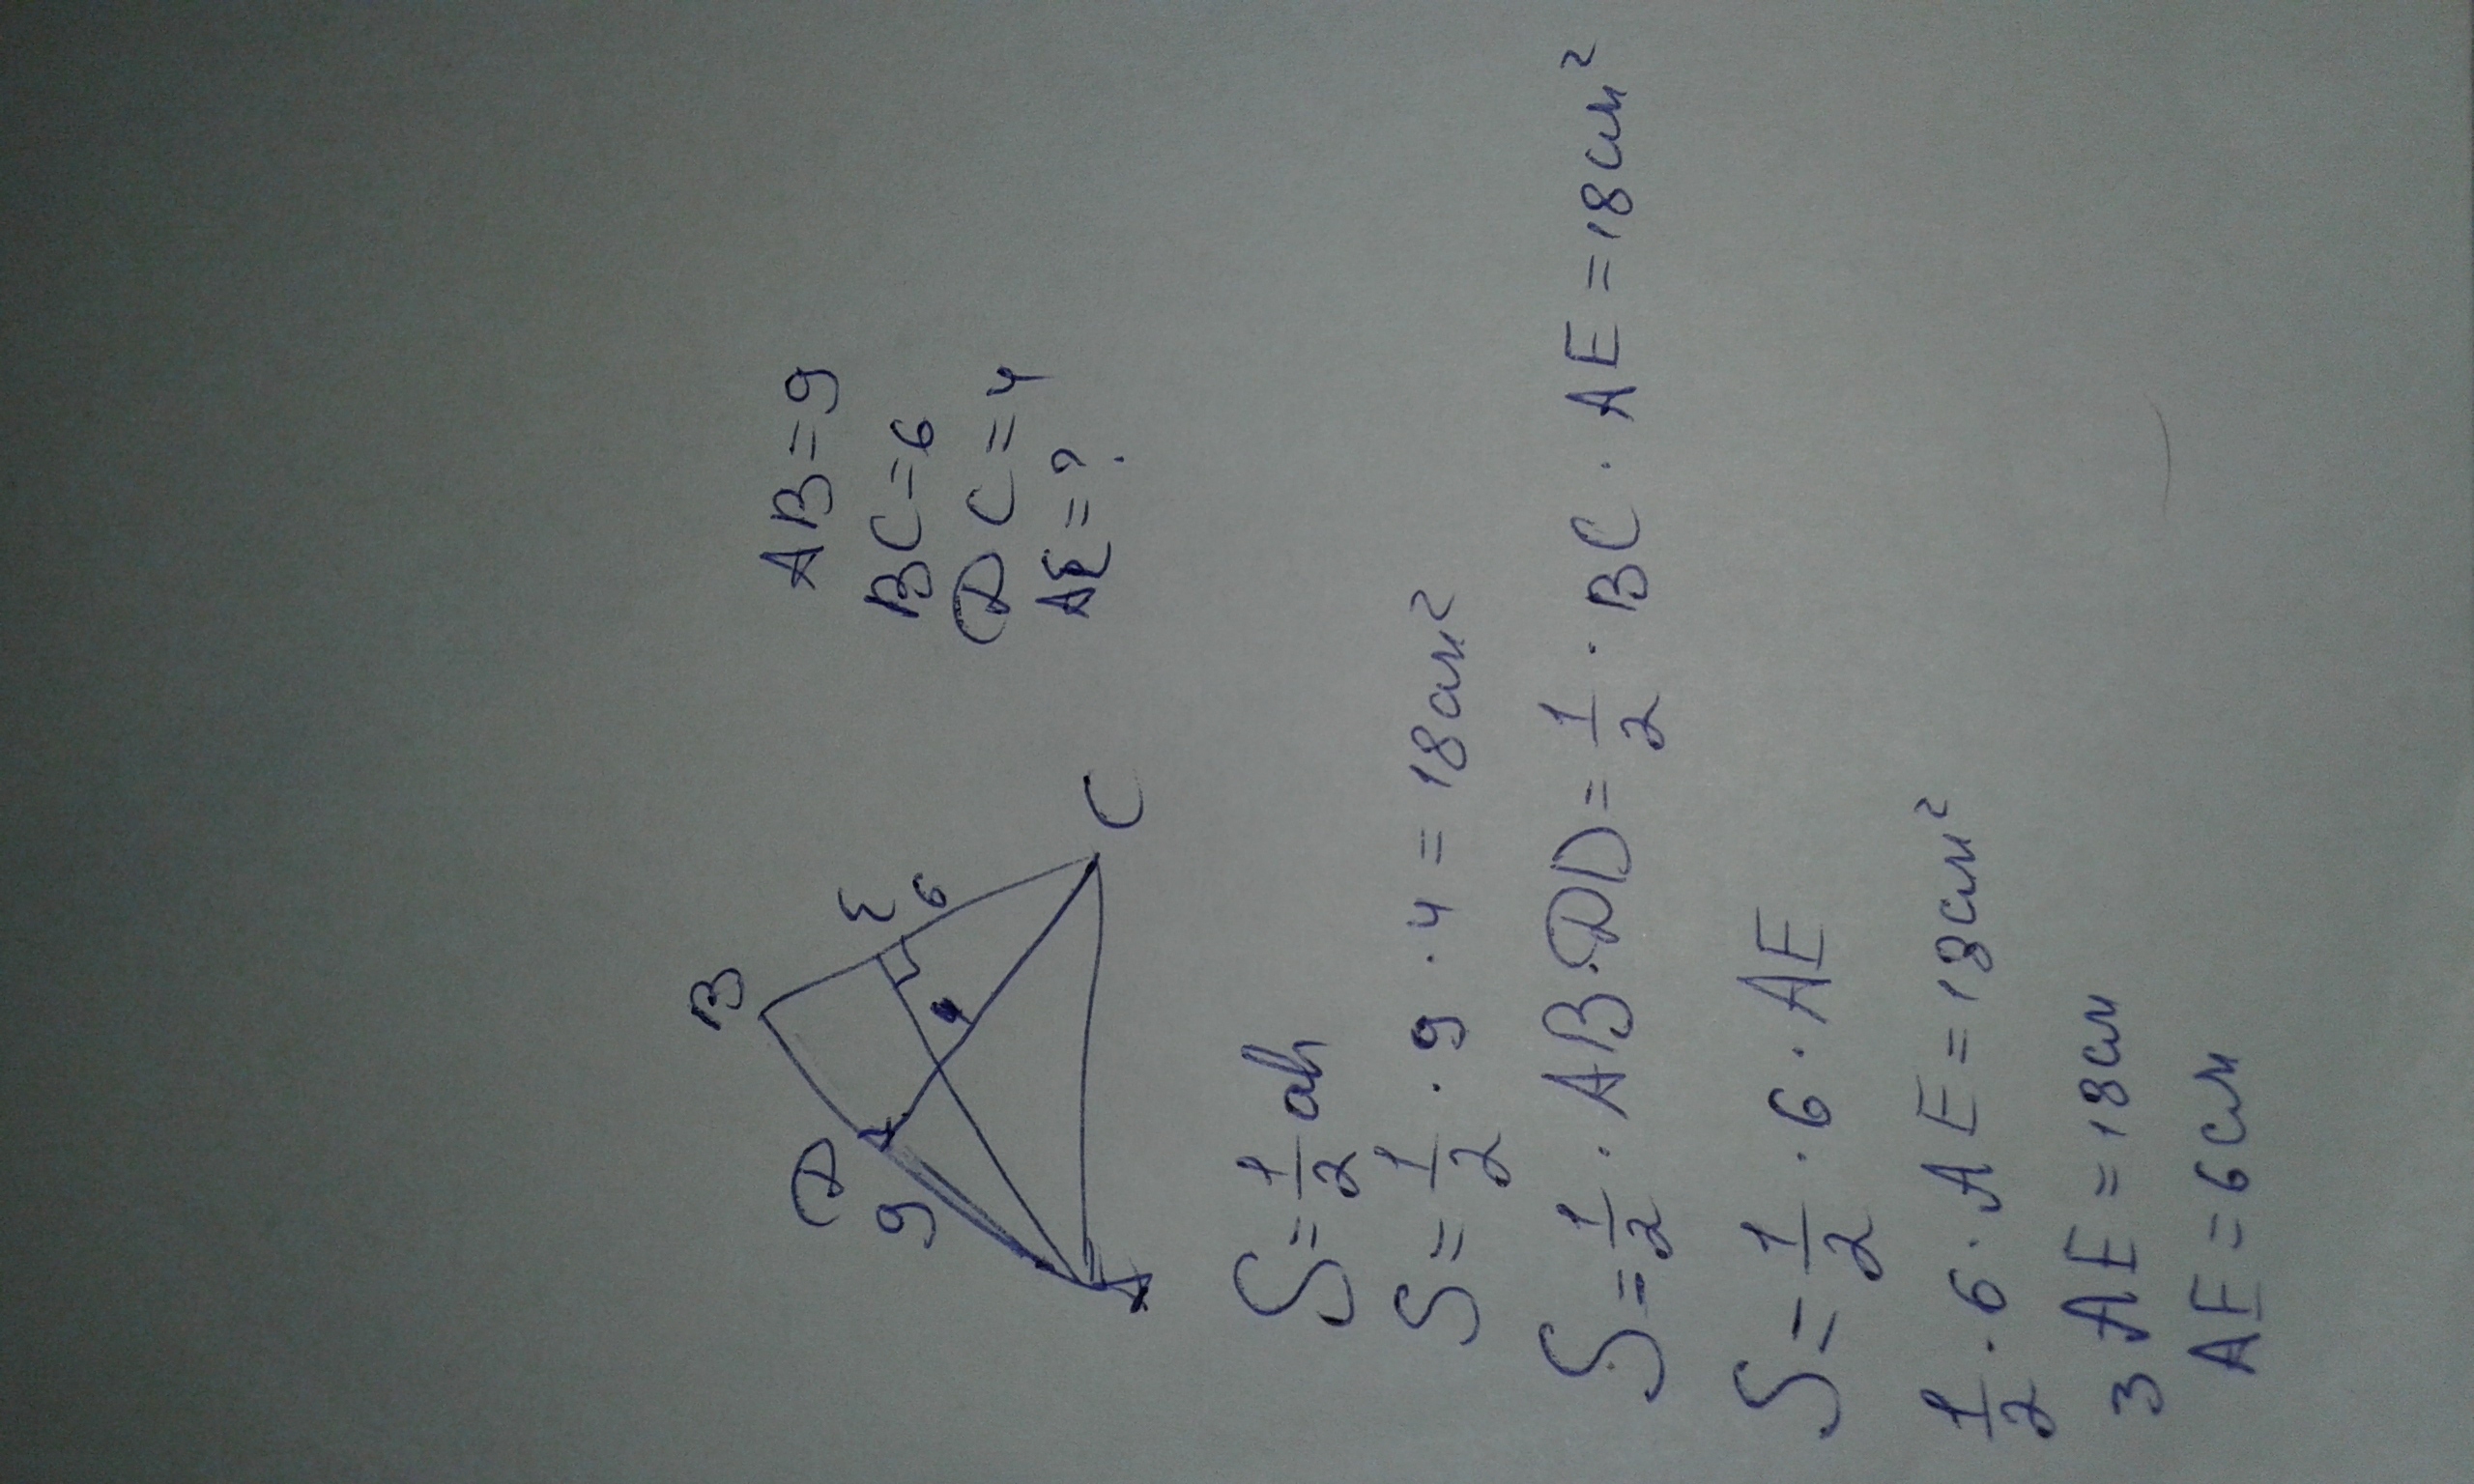 B
E
D
6
9
4
A
C
AB=9
BC=6
DC=4
AE=?
S=1/2 ah
S=1/2·9·4=18см²
S=1/2·AB·DD=1/2·BC·AE=18см²
S=1/2·6·AE
1/2·6·AE=18см²
3AE=18см
AE=6см